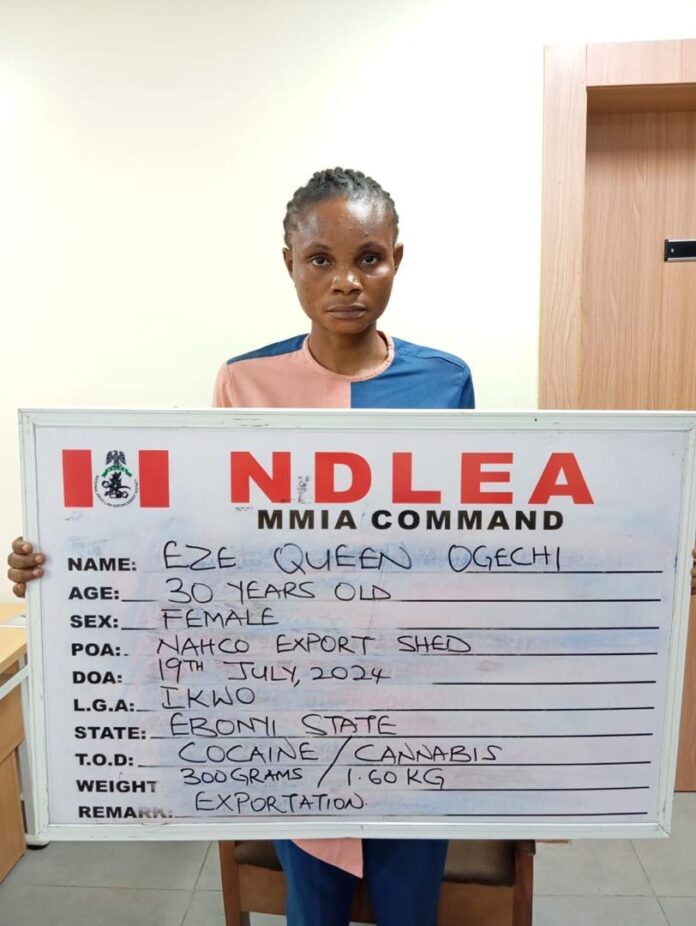 NDLEA
MMIA COMMAND
NAME: EZE QUEEN OGECHI
AGE: 30 YEARS OLD
SEX: FEMALE
POA: NAHCO EXPORT SHED
DOA: 19TH JULY, 2024
L.G.A: IKWO
STATE: EBONYI STATE
T.O.D: COCAINE / CANNABIS
WEIGHT 300GRAMS / 1.60 KG
REMARK: EXPORTATION